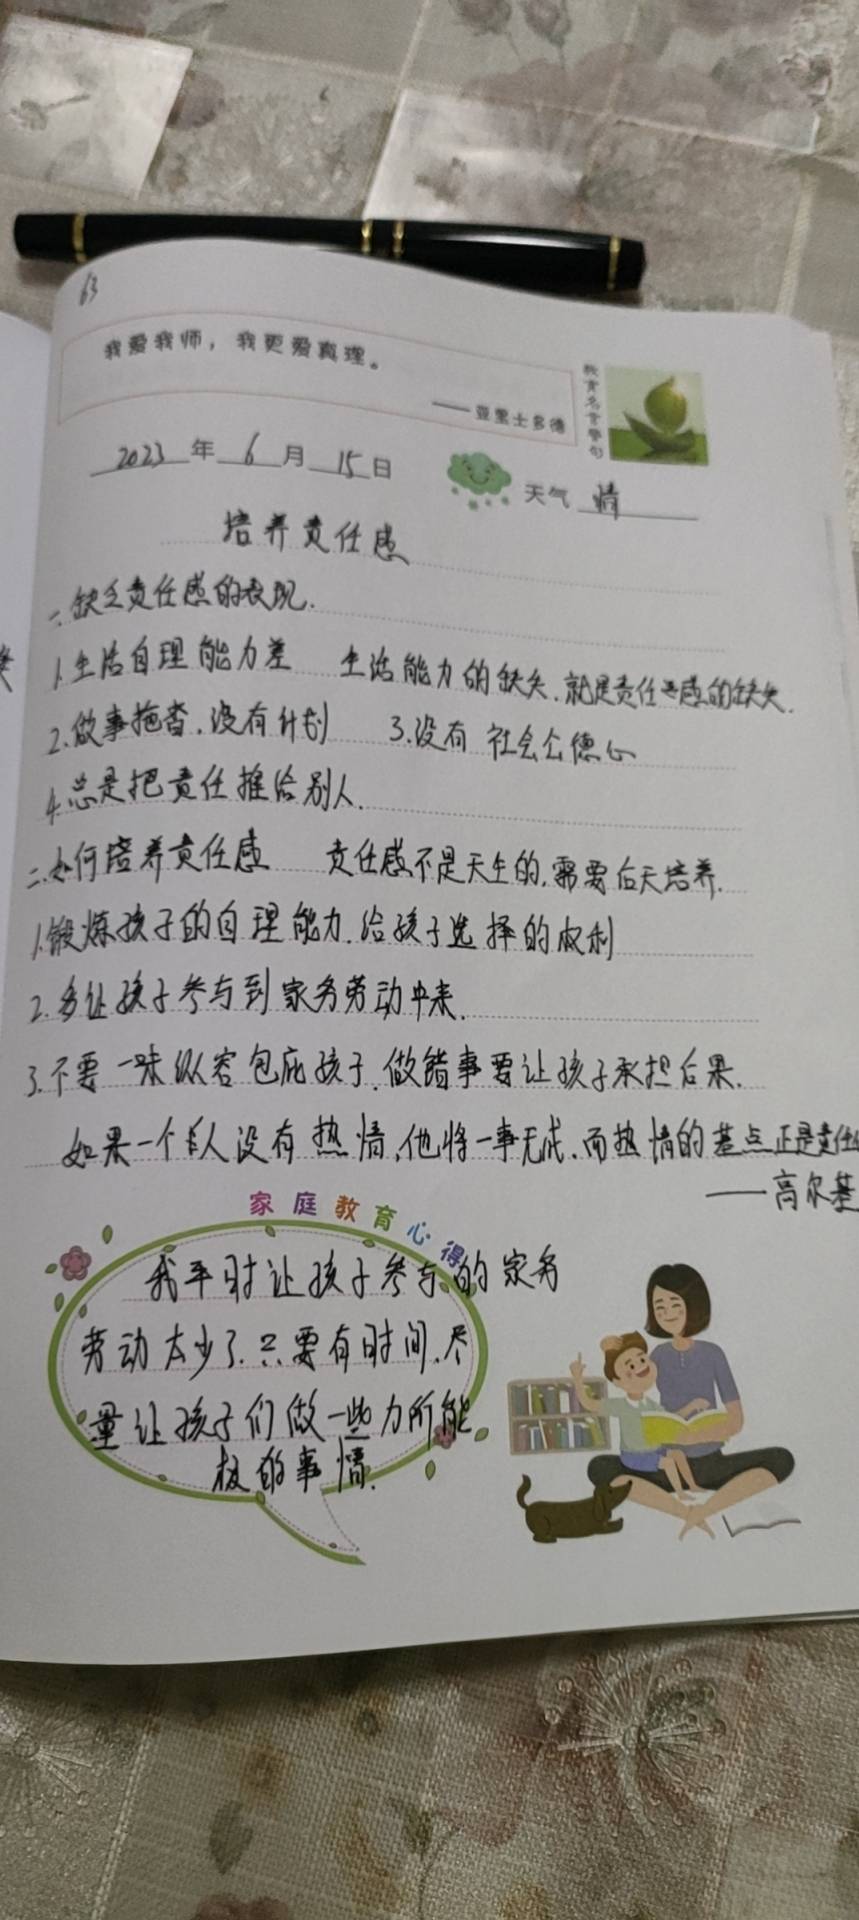 63
我爱我师，我更爱真理。
——亚里士多德
教育名言警句
2023年6月15日
天气 情
培养责任感
一、缺乏责任感的表现.
1.生活自理能力差 生活能力的缺失.就是责任感的缺失.
2.做事拖沓.没有计划 3.没有 社会公德心
4.总是把责任推给别人.
二、如何培养责任感 责任感不是天生的.需要后天培养.
1.锻炼孩子的自理能力.给孩子选择的权利
2.多让孩子参与到家务劳动中来.
3.不要一味纵容包庇孩子.做错事要让孩子承担后果.
如果一个人没有热情,他将一事无成.而热情的基点正是责任
——高尔基
家庭教育心得
我平时让孩子参与的家务
劳动太少了.只要有时间.尽
量让孩子们做一些力所能
极的事情.